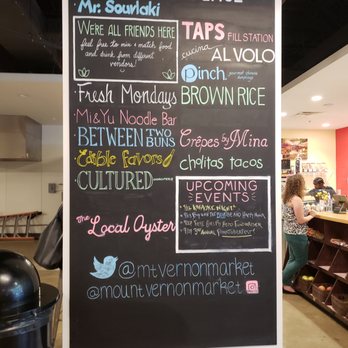 Mr. Souvlaki
WE'RE ALL FRIENDS HERE
feel free to mix & match food
and drink from different
vendors!
TAPS FILL STATION
cucina AL VOLO
pinch gourmet chinese dumplings
Fresh Mondays
BROWN RICE
Mi&Yu Noodle Bar
BETWEEN TWO BUNS
Crêpes by Mina
Edible Favors
cholitas tacos
CULTURED
UPCOMING
EVENTS
The Local Oyster
@mtvernonmarket
@mountvernonmarket